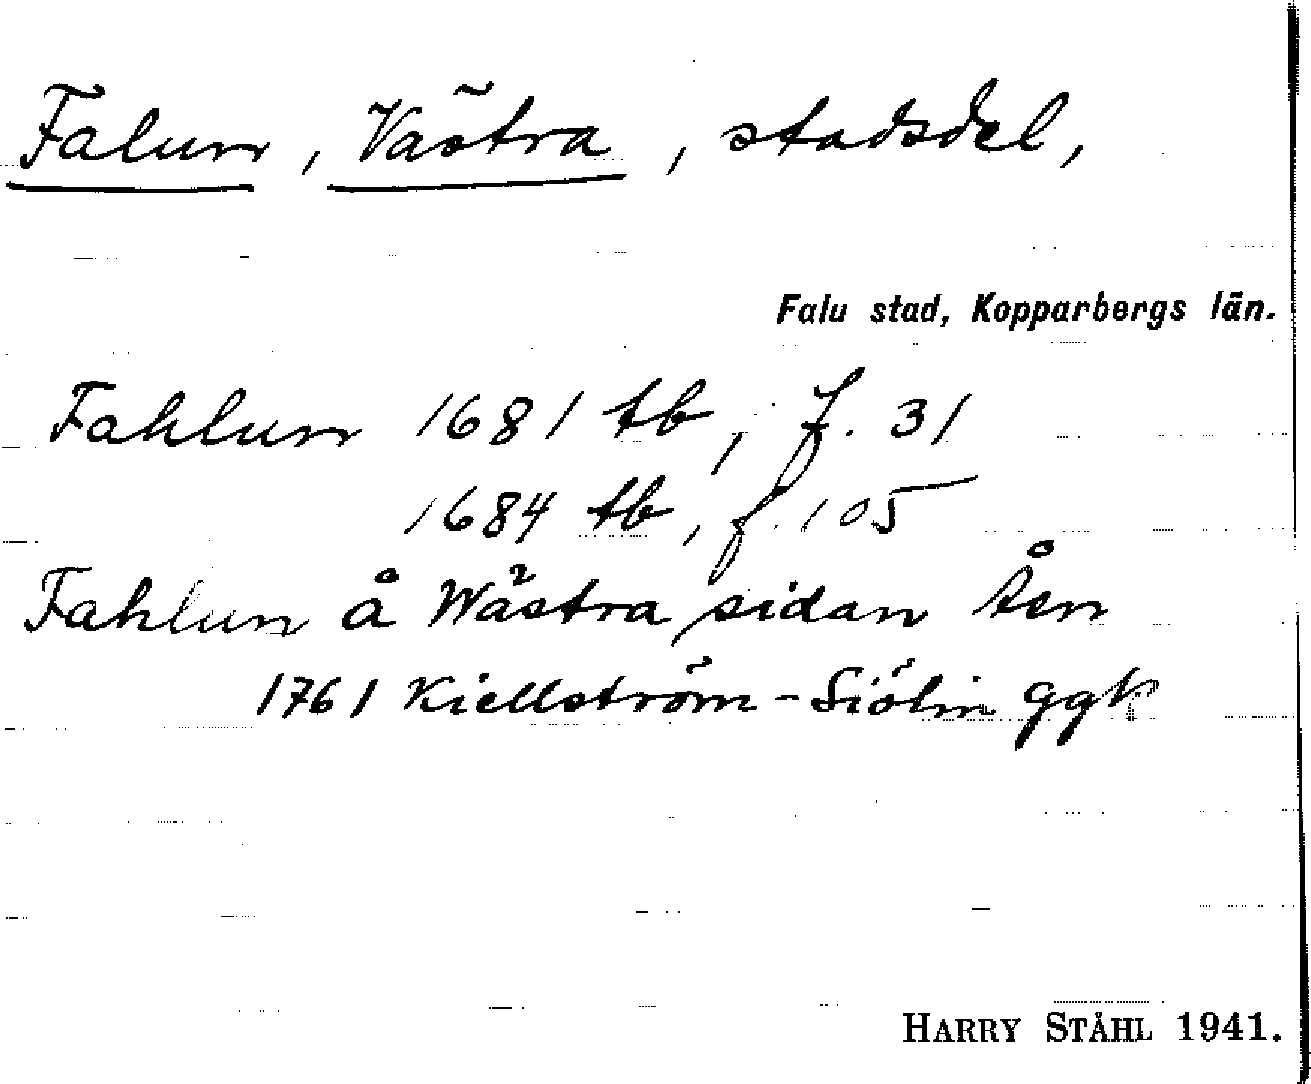 Falun, Västra, stadsdel,
Falu stad, Kopparbergs län.
Fahlun 1681 tb, f. 31
1684 tb, f. 105
Fahlun å Wästra sidan Åen
1761 Kiellström-Siölin ggk
HARRY STÅHL 1941.